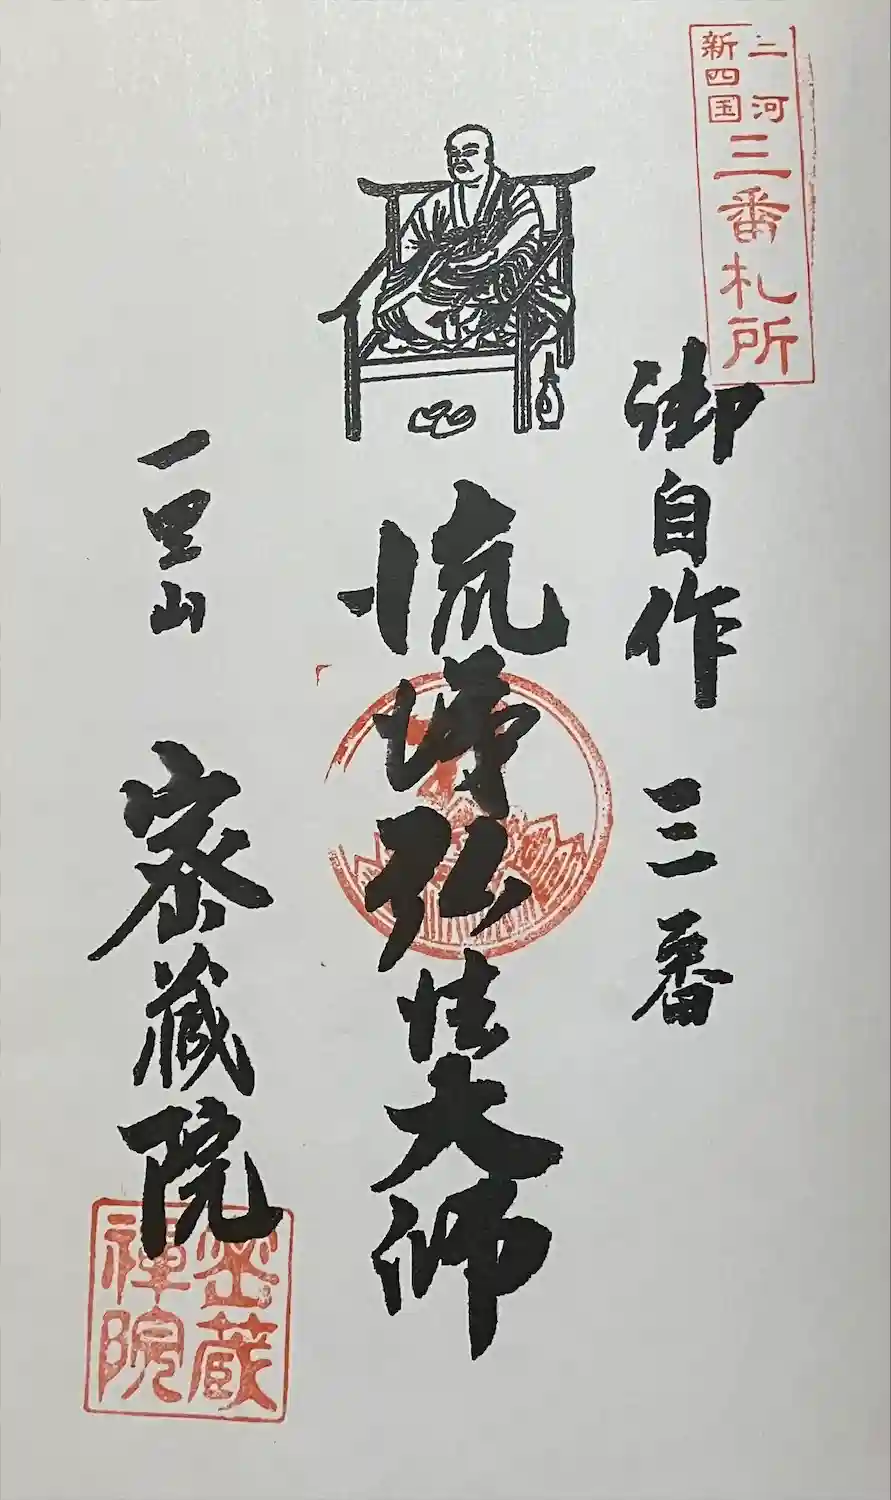 三河
新四国
三番札所
御自作 三番
流涕弘法大師
一里山 密蔵院
密蔵
禪院